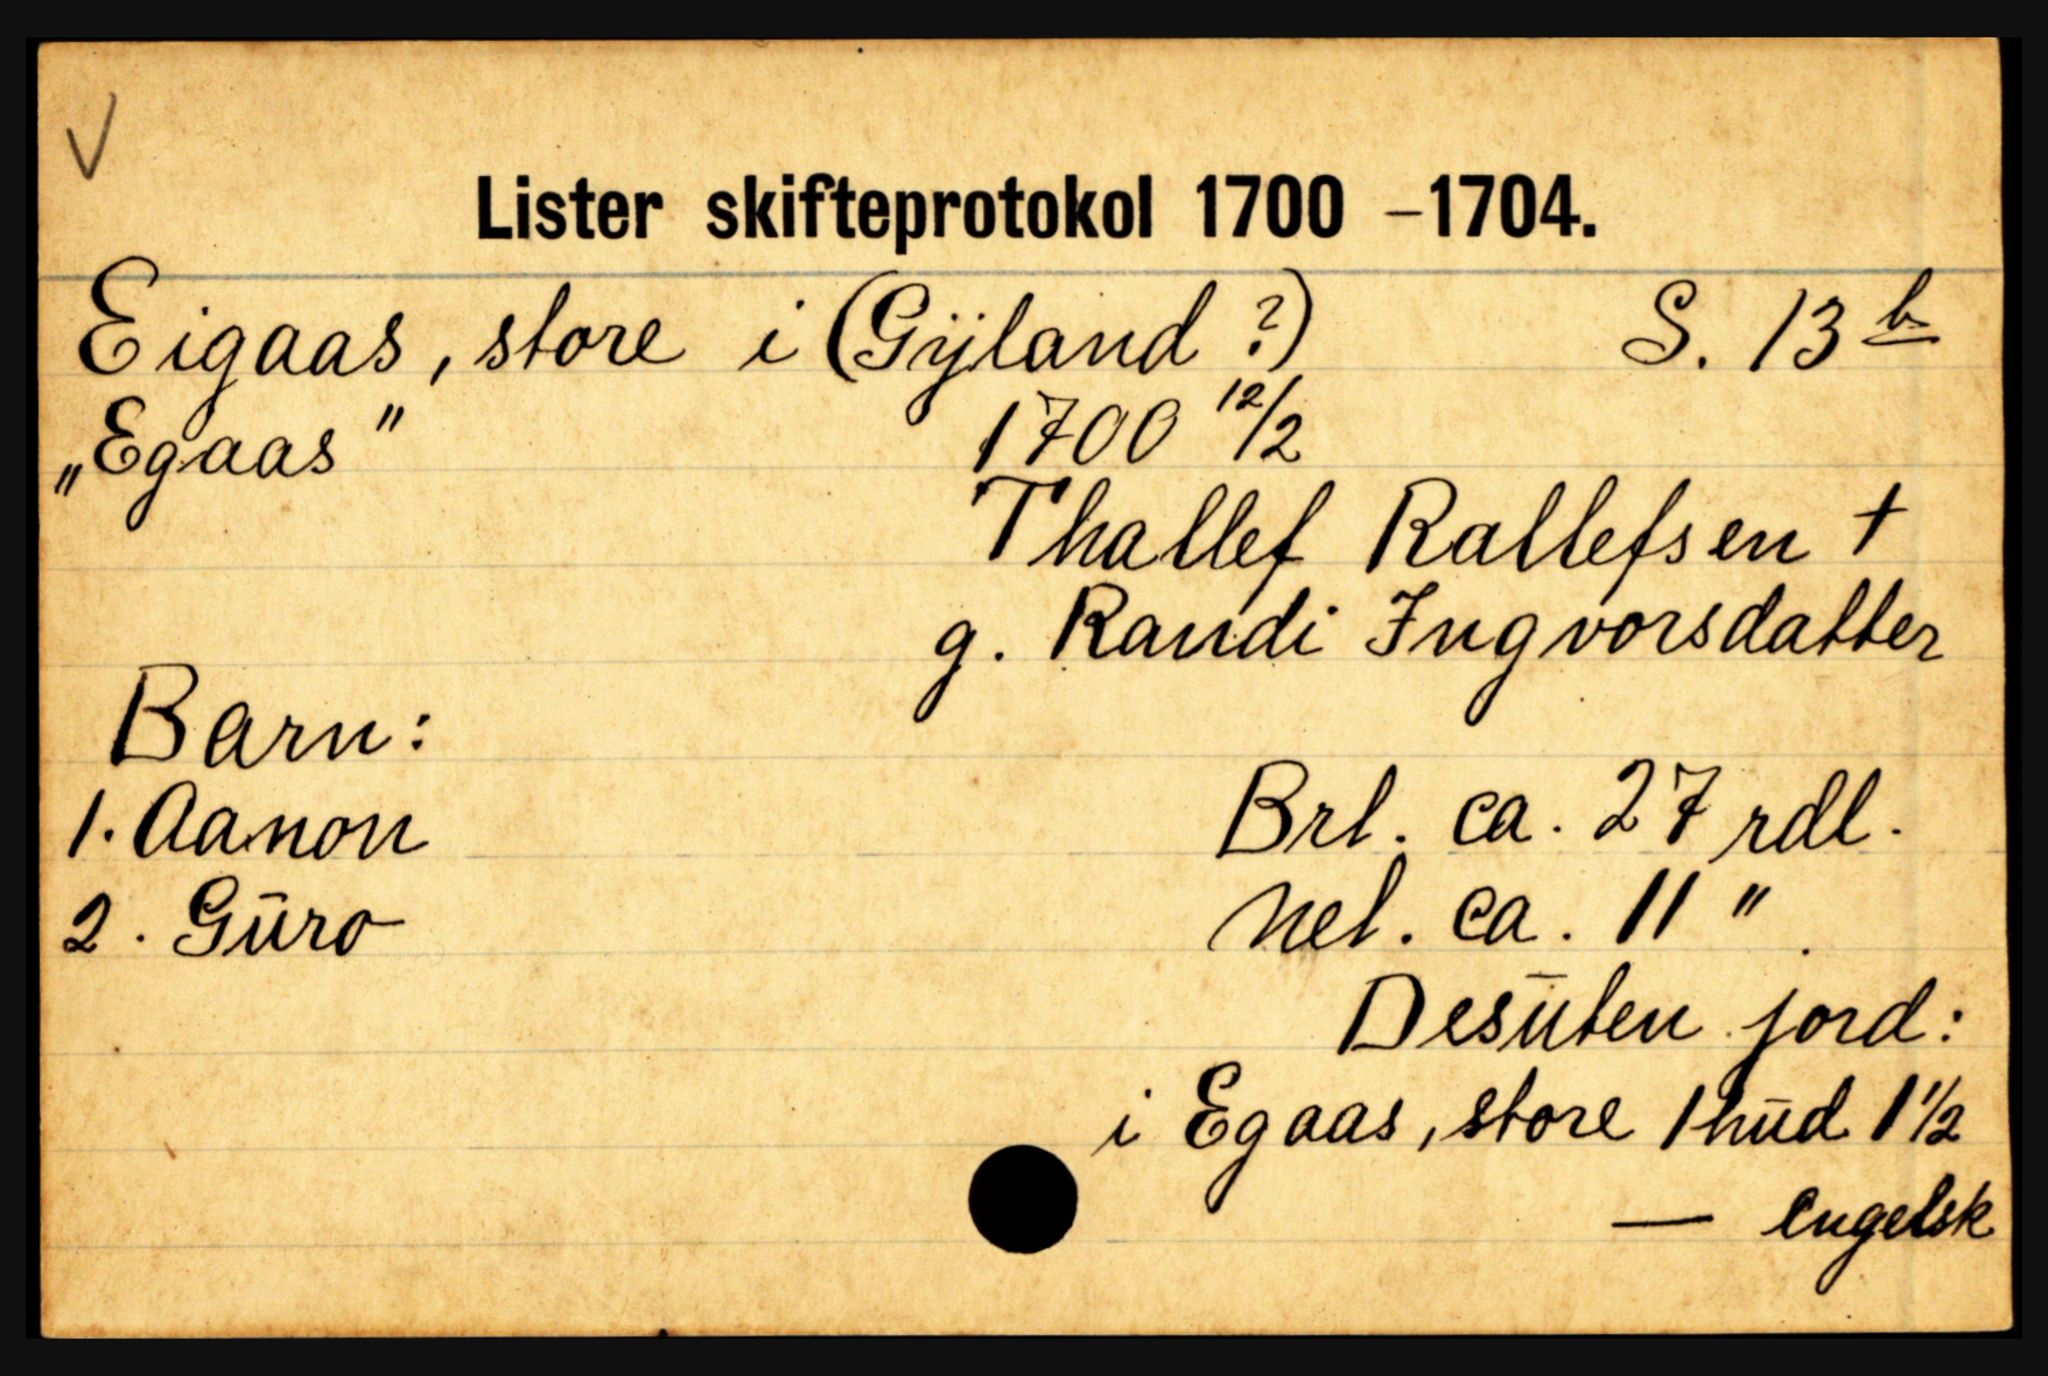 V
Lister skifteprotokol 1700 -1704.
Eigaas, store i (Gyland ?) S. 13 b
„Egaas" 1700 12/2
Thallef Rallefsen †
g. Randi Ingvorsdatter
Barn:
1. Aanon Brl. ca. 27 rdl.
2. Gūro Nel. ca. 11 " .
Desūten jord:
i Egaas, store 1 hūd 1 1/2
— engelsk